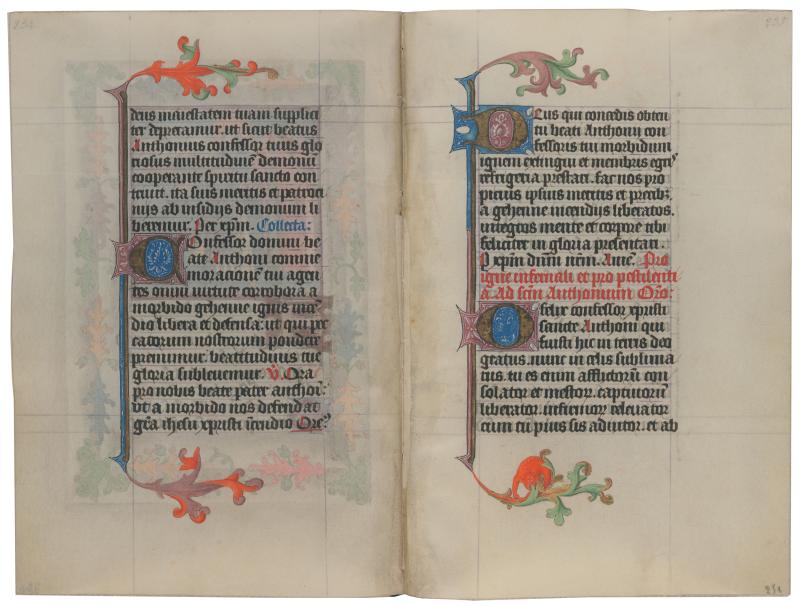 deus maiestatem tuam supplici
ter deprecamur. ut sicut beatus
Anthonius confessor tuus glo
riosus multitudinē demonū
cooperante spiritu sancto con
triuit. ita suis meritis et patroci
nijs ab insidijs demonum li
beremur. Per xp̄m. Collecta:
Confessor domini be
ate Anthoni comme
moracionē tui agen
tes omni uirtute corrobora a
morbido gehenne ignis incē
dio libera et defensa: ut qui pec
catorum nostrorum pondere
premimur. beatitudinis tue
gloria subleuemur. V̄. Ora
pro nobis beate pater anthoni:
Vt a morbido nos defendat
gr̄a ihesu xpristi incendio Ore:
Deus qui concedis obten
tu beati Anthonii con
fessoris tui morbidum
ignem extingui et membris egris
refrigeria prestari. fac nos pro
picius ipsius meritis et precibus
a gehenne incendijs liberatos.
integros mente et corpore tibi
feliciter in gloria presentari.
P xp̄m dn̄m nr̄m. Amē. Pro
igne infernali et pro pestilenti
a Ad sc̄m Anthonium Or̄o:
O felix confessor xpristi
sancte Anthoni qui
fuisti hic in terris deo
gratus. nunc in celis sublima
tus. tu es enim afflictorū con
solator et mestor. captiuorū
liberator. infirmor releuator
cum tu pius sis adiutor. et ab
231